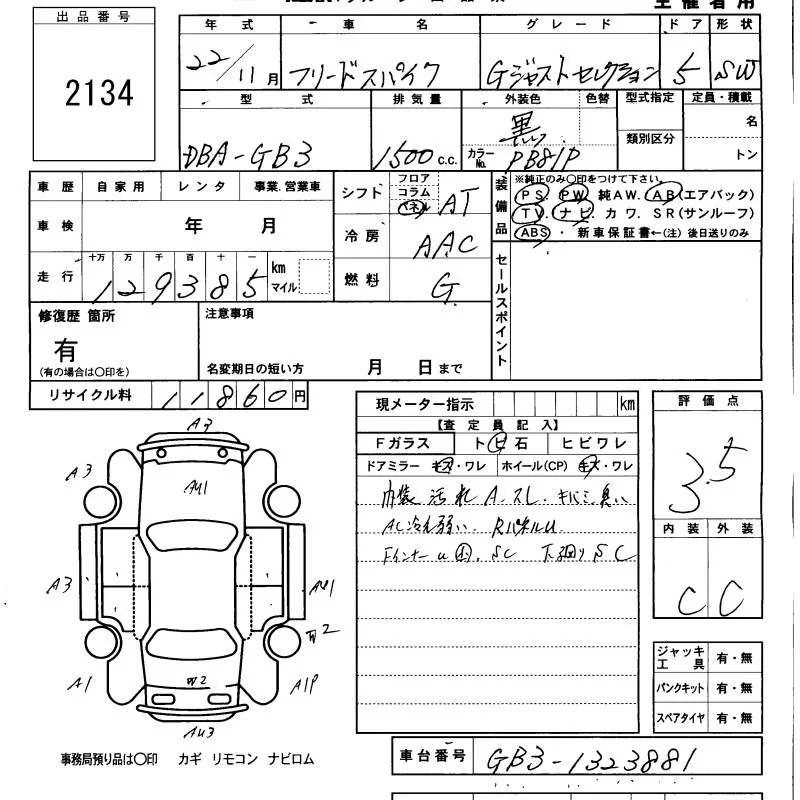 主催者用
出品番号
2134
年式 車名 グレード ドア 形状
22/11月 フリードスパイク Gジャストセレクション 5 SW
型式 排気量 外装色 色替 型式指定 定員・積載
DBA-GB3 1500c.c. 黒 カラーNo. PB81P 類別区分 名 トン
車歴 自家用 レンタ 事業.営業車
車検 年 月
走行 十万 万 千 百 十 一 km マイル
129385
シフト フロア コラム パネル AT
冷房 AAC
燃料 G
装備品
※純正のみ〇印をつけて下さい。
PS. PW. 純AW. AB(エアバック)
TV. ナビ. カワ. SR(サンルーフ)
ABS ・ 新車保証書←(注) 後日送りのみ
セールスポイント
修復歴 箇所
有
(有の場合は〇印を)
注意事項
名変期日の短い方 月 日まで
リサイクル料 11860円
現メーター指示 km
【査定員記入】
Fガラス トビ石 ヒビワレ
ドアミラー キズ・ワレ ホイール(CP) キズ・ワレ
内装汚れ A.スレ. キバミ 臭い
AC冷え弱い. RパネルU
FインナーU SC 下回りSC
評価点
3.5
内装 外装
C C
ジャッキ工具 有・無
パンクキット 有・無
スペアタイヤ 有・無
A3
A3
AU1
A3
AU1
W2
A1
W2
A1P
AU3
事務局預り品は〇印 カギ リモコン ナビロム
車台番号 GB3-1323881